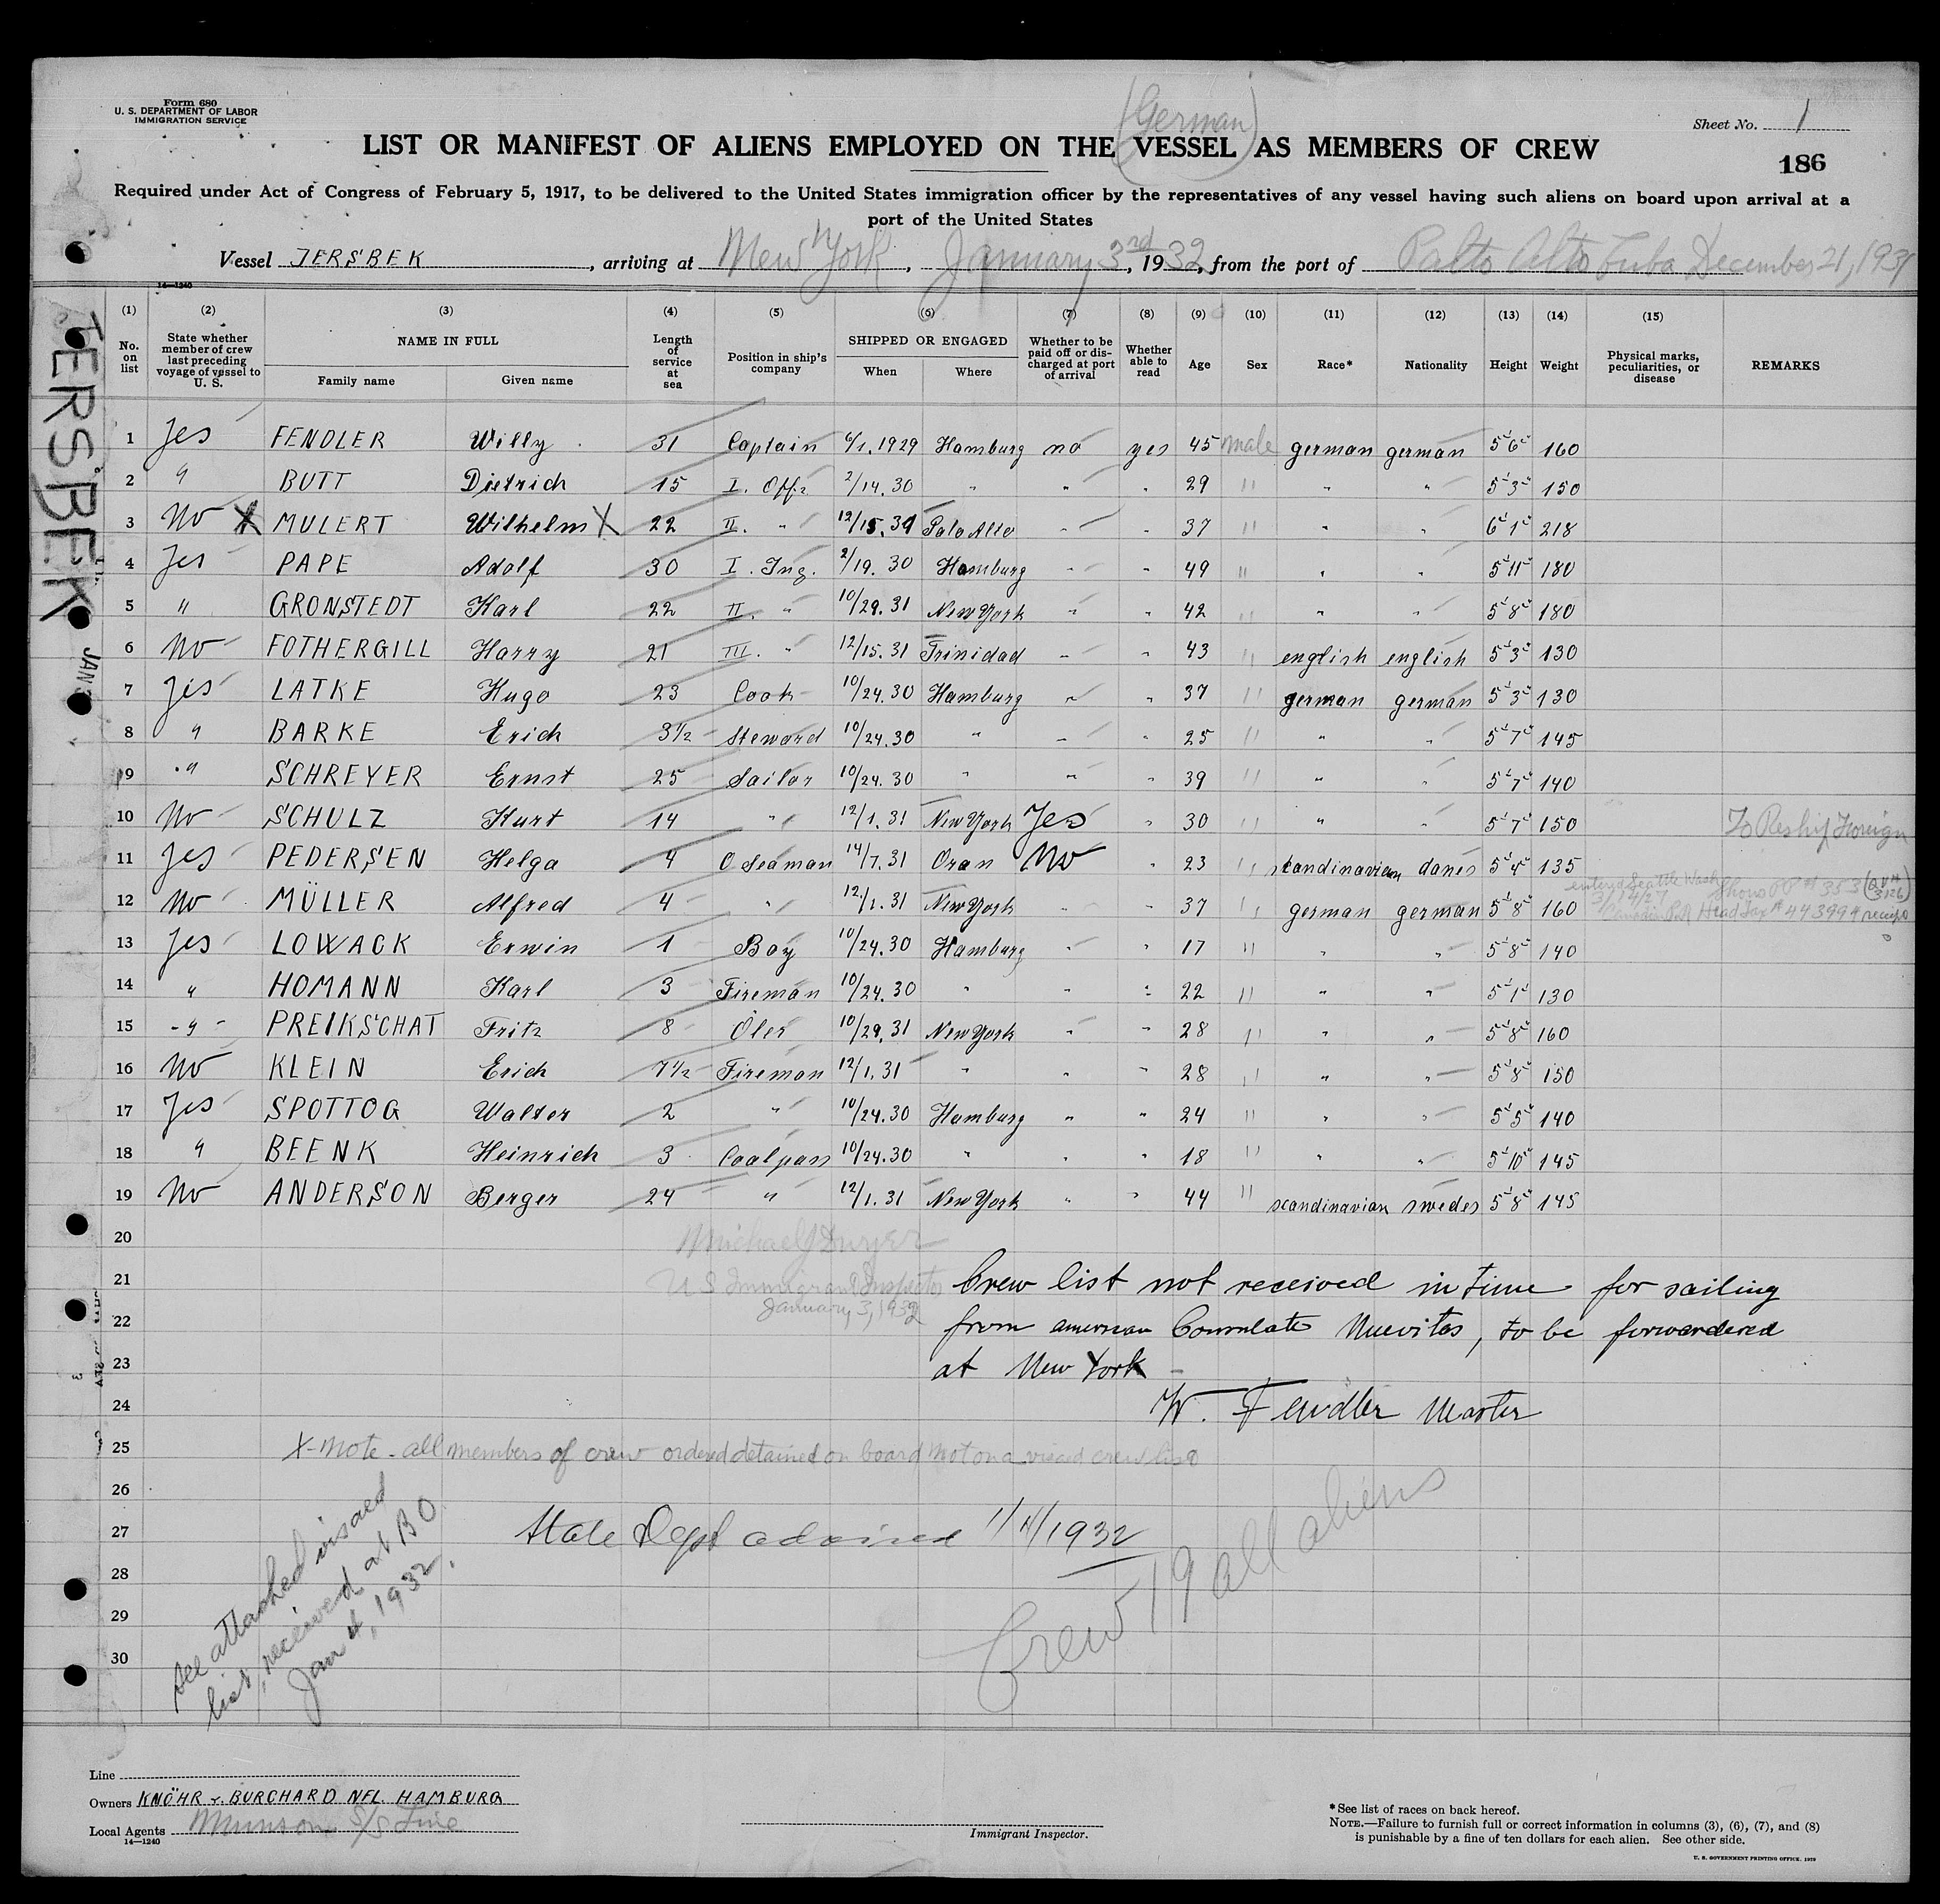 Form 680
U. S. DEPARTMENT OF LABOR
IMMIGRATION SERVICE
(German)
Sheet No. 1
LIST OR MANIFEST OF ALIENS EMPLOYED ON THE VESSEL AS MEMBERS OF CREW
186
Required under Act of Congress of February 5, 1917, to be delivered to the United States immigration officer by the representatives of any vessel having such aliens on board upon arrival at a
port of the United States
Vessel JERSBEK, arriving at New York, January 3rd, 1932, from the port of Palto Alto Cuba December 21, 1931
14—1240
(1) (2) (3) (4) (5) (6) (7) (8) (9) (10) (11) (12) (13) (14) (15)
No. on list
State whether member of crew last preceding voyage of vessel to U. S.
NAME IN FULL
Family name Given name
Length of service at sea
Position in ship's company
SHIPPED OR ENGAGED
When Where
Whether to be paid off or discharged at port of arrival
Whether able to read
Age Sex Race* Nationality Height Weight
Physical marks, peculiarities, or disease
REMARKS
JERSBEK
1 Yes FENDLER Willy 31 Captain 6/1.1929 Hamburg no yes 45 male german german 5'6" 160
2 " BUTT Dietrich 15 I. Offz 2/14.30 " " " 29 " " " 5'3" 150
3 No X MULERT Wilhelm X 22 II. " 12/15.31 Palo Alto " " 37 " " " 6'1" 218
4 Yes PAPE Adolf 30 I. Ing. 2/19.30 Hamburg " " 49 " " " 5'11" 180
5 " GRONSTEDT Karl 22 II. " 10/29.31 New York " " 42 " " " 5'8" 180
6 No FOTHERGILL Harry 21 III. " 12/15.31 Trinidad " " 43 " english english 5'3" 130
7 Yes LATKE Hugo 23 Cook 10/24.30 Hamburg " " 37 " german german 5'3" 130
8 " BARKE Erich 3 1/2 Steward 10/24.30 " " " 25 " " " 5'7" 145
9 " SCHREYER Ernst 25 Sailor 10/24.30 " " " 39 " " " 5'7" 140
10 No SCHULZ Kurt 14 " 12/1.31 New York Yes " 30 " " " 5'7" 150 To Reship Foreign
11 Yes PEDERSEN Helga 4 O Seaman 14/7.31 Oran No " 23 " skandinavien danes 5'4" 135
12 No MÜLLER Alfred 4 " 12/1.31 New York " " 37 " german german 5'8" 160
entered Seattle Wash
Head Tax # 443994
13 Yes LOWACK Erwin 1 Boy 10/24.30 Hamburg " " 17 " " " 5'8" 140
14 " HOMANN Karl 3 Fireman 10/24.30 " " " 22 " " " 5'1" 130
15 " PREIKSCHAT Fritz 8 Öler 10/29.31 New York " " 28 " " " 5'8" 160
16 No KLEIN Erich 7 1/2 Fireman 12/1.31 " " " 28 " " " 5'8" 150
17 Yes SPOTTOG Walter 2 " 10/24.30 Hamburg " " 24 " " " 5'5" 140
18 " BEENK Heinrich 3 Coalpass 10/24.30 " " " 18 " " " 5'10" 145
19 No ANDERSON Berger 24 " 12/1.31 New York " " 44 " scandinavian swedes 5'8" 145
20
21
22
23
24
25
26
27
28
29
30
Michael J Dwyer
U S Immigrant Inspector
January 3, 1932
Crew list not received in time for sailing
from american Consulate Nuevitas, to be forwardered
at New York
W. Fendler Master
X-Note - all members of crew ordered detained on board not on a visaed crew list
State Dept advised 1/4/1932
Crew 19 all aliens
See attached visaed
list, received at B O
Jan 4, 1932.
Line
Owners KNÖHR & BURCHARD NFL. HAMBURG
Local Agents Munson S/S Line
14—1240
Immigrant Inspector.
*See list of races on back hereof.
NOTE.—Failure to furnish full or correct information in columns (3), (6), (7), and (8)
is punishable by a fine of ten dollars for each alien. See other side.
U. S. GOVERNMENT PRINTING OFFICE. 1929